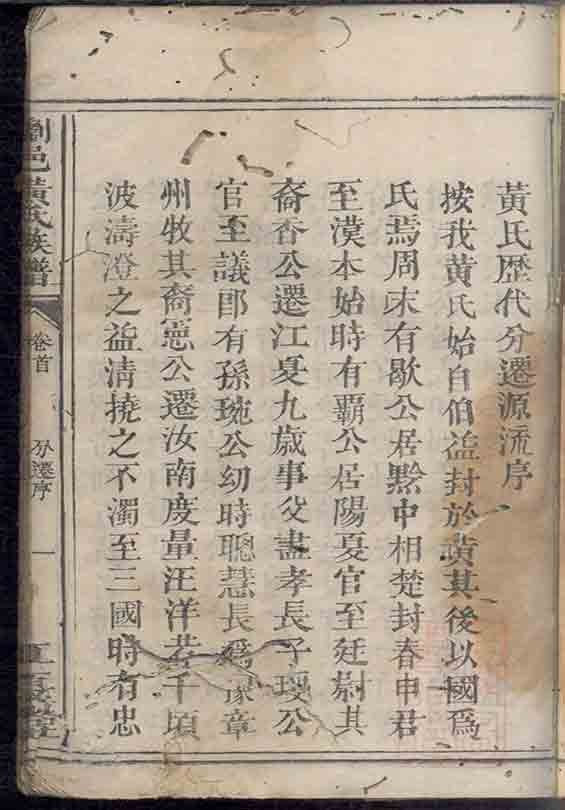 黃氏歷代分遷源流序
按我黃氏始自伯益封於黃其後以國爲
氏焉周末有歇公居黔中相楚封春申君
至漢本始時有霸公居陽夏官至廷尉其
裔香公遷江夏九歲事父盡孝長子瓊公
官至議郎有孫琬公幼時聰慧長爲豫章
州牧其裔憲公遷汝南度量汪洋若千頃
波濤澄之益清撓之不濁至三國時有忠
瀏邑黃氏族譜
卷首
分遷序
一
江夏堂